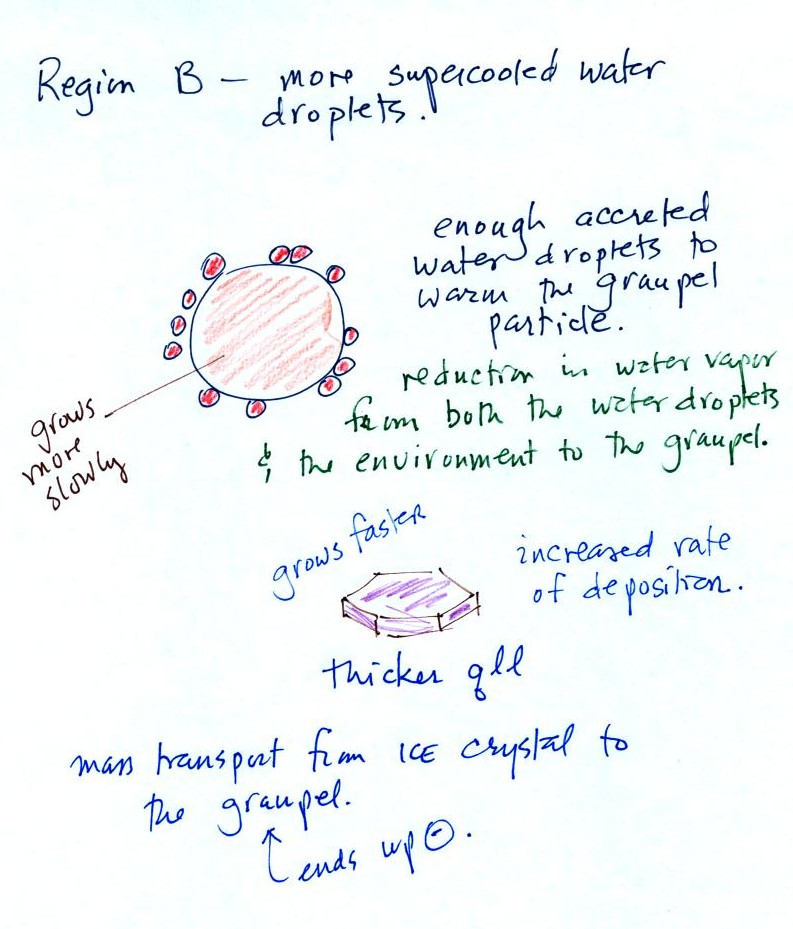 Region B - more supercooled water
droplets.
enough accreted
water droplets to
warm the graupel
particle.
reduction in water vapor
from both the water droplets
& the environment to the graupel.
grows
more
slowly
grows faster
increased rate
of deposition.
thicker qll
mass transport from ICE crystal to
the graupel.
ends up ⊖.